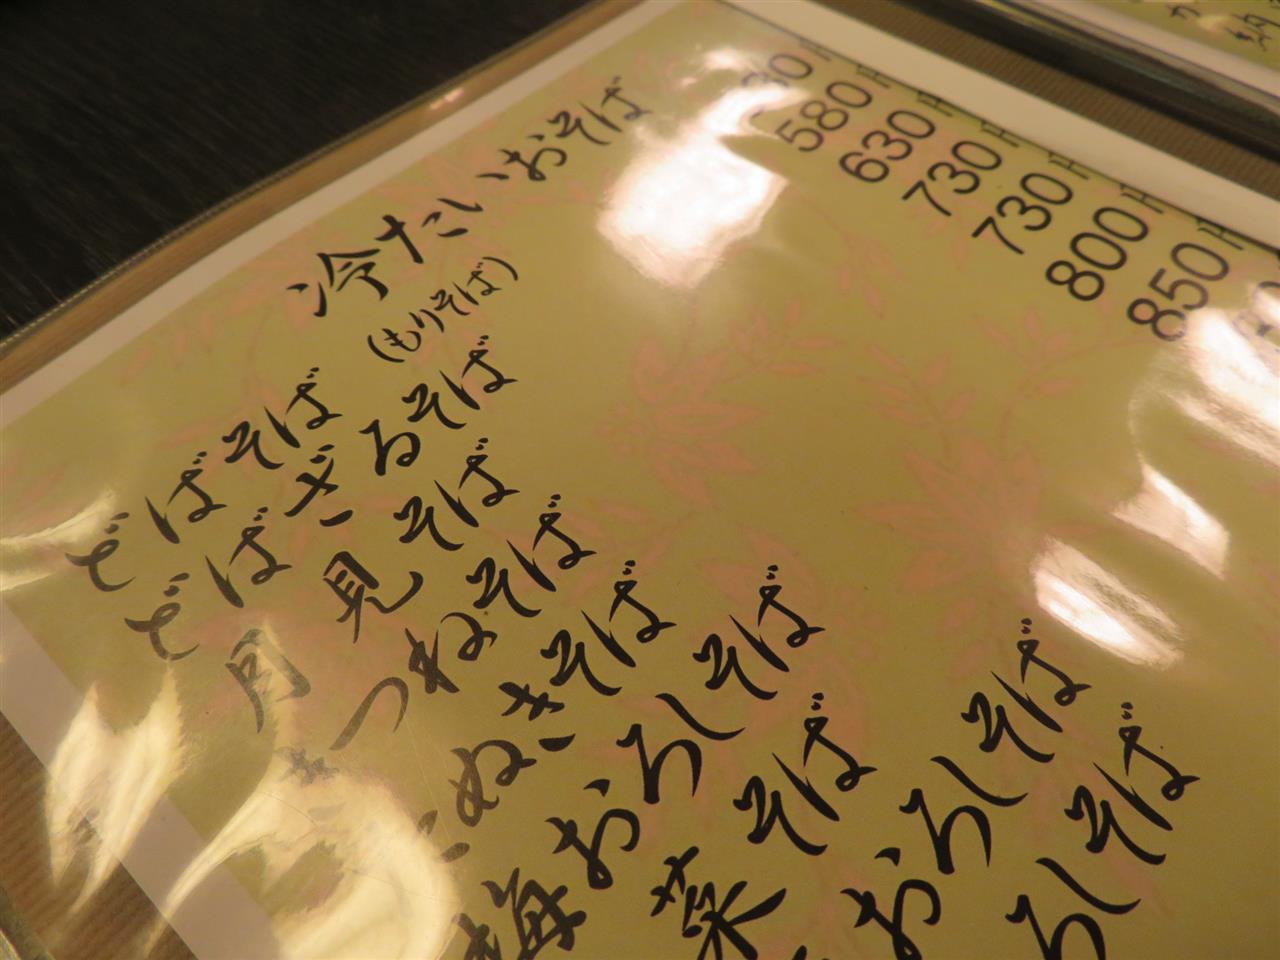 冷たいおそば
(もりそば)
でばそば 30円
でばざるそば 580円
月見そば 630円
きつねそば 730円
ぬきそば 730円
梅おろしそば 800円
菜そば 850円
おろしそば
ろしそば